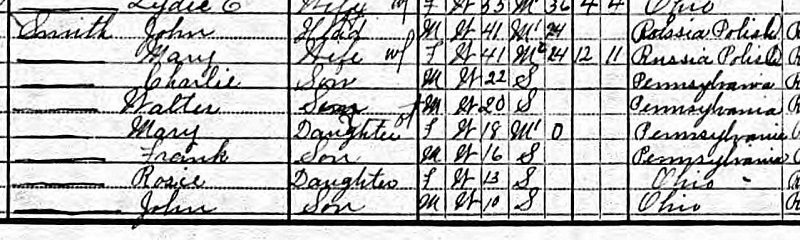 Lydie C Wife F W 53 M 36 4 4 Ohio
Smith John Head M W 41 M1 24 Russia Polish
Mary Wife F W 41 M 24 12 11 Russia Polish
Charlie Son M W 22 S Pennsylvania
Walter Son M W 20 S Pennsylvania
Mary Daughter F W 18 M1 0 Pennsylvania
Frank Son M W 16 S Pennsylvania
Rosie Daughter F W 13 S Ohio
John Son M W 10 S Ohio